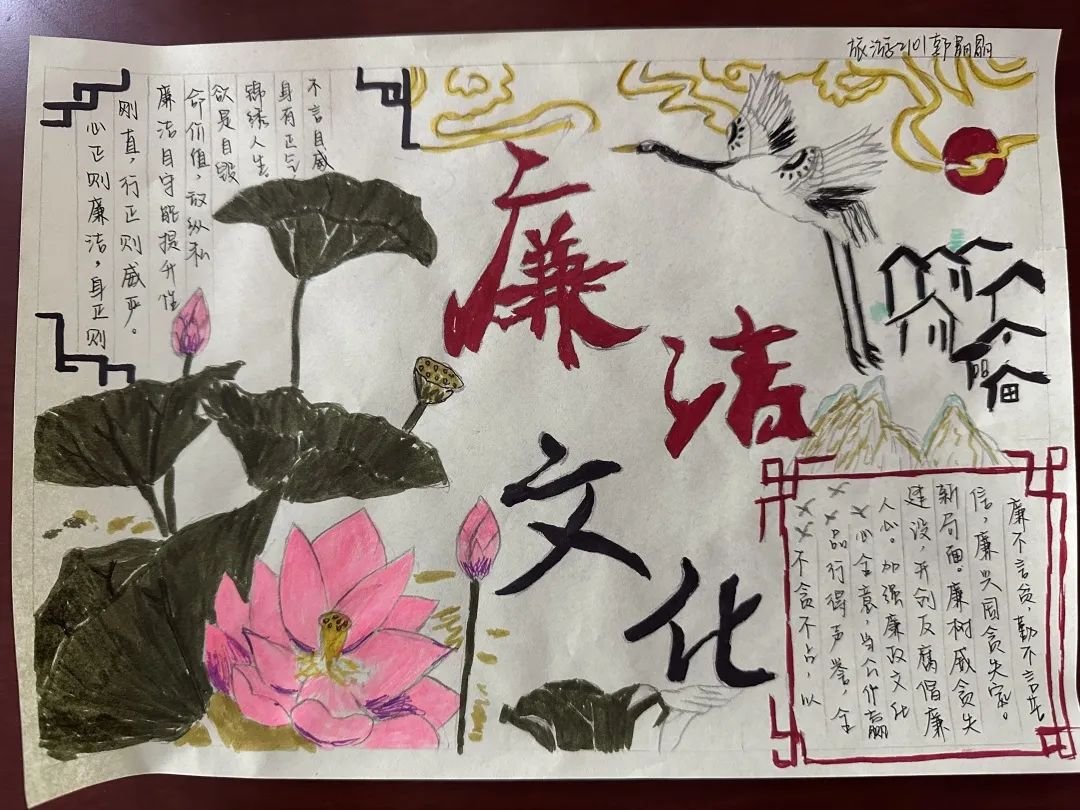 旅游2101郭
廉洁
文化
心正则廉洁,身正则
刚直,行正则威严。
廉洁自守能提升性
命价值,放纵私
欲是自毁
锦绣人生。
身有正气
不言自威
××不贪不占,以
××品行得声誉,全
×心全意,当公仆赢
人心。加强廉政文化
建设,开创反腐倡廉
新局面。廉树威贪失
信,廉兴国贪失家。
廉不言贫,勤不言苦